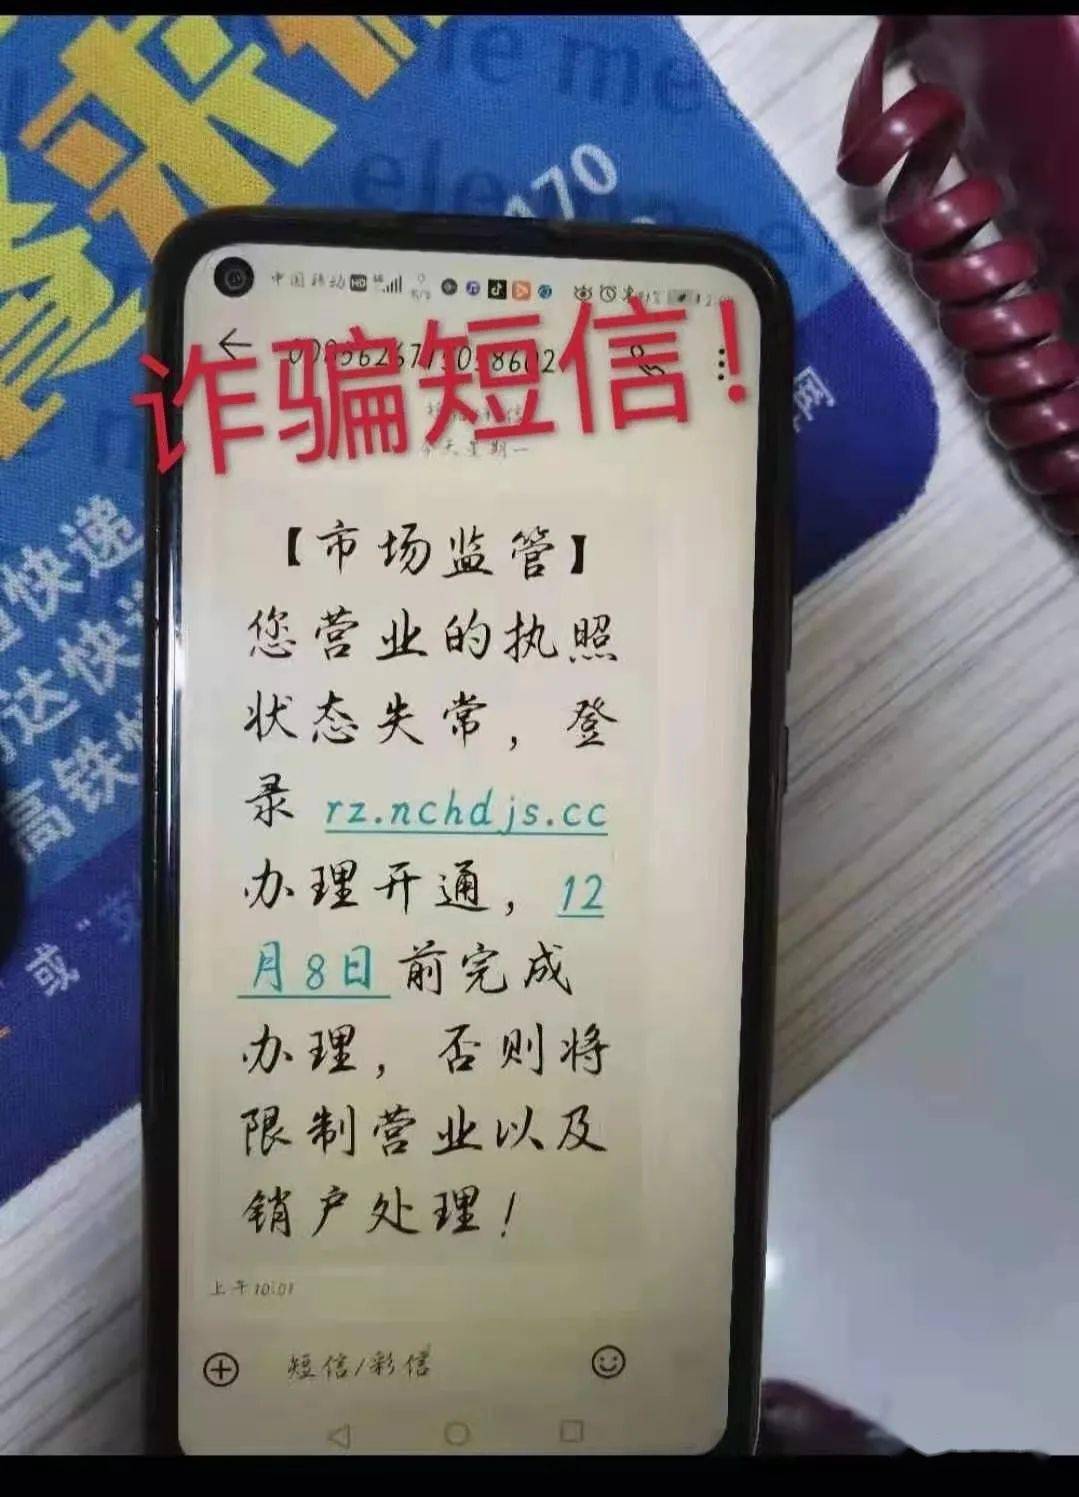 ele me
ele me
470
中国移动 HD
诈骗短信！
今天星期一
【市场监管】
您营业的执照
状态失常，登
录 rz.nchdjs.cc
办理开通，12
月8日前完成
办理，否则将
限制营业以及
销户处理！
上午10:01
短信/彩信
快递
达快
高铁快
或"支
网